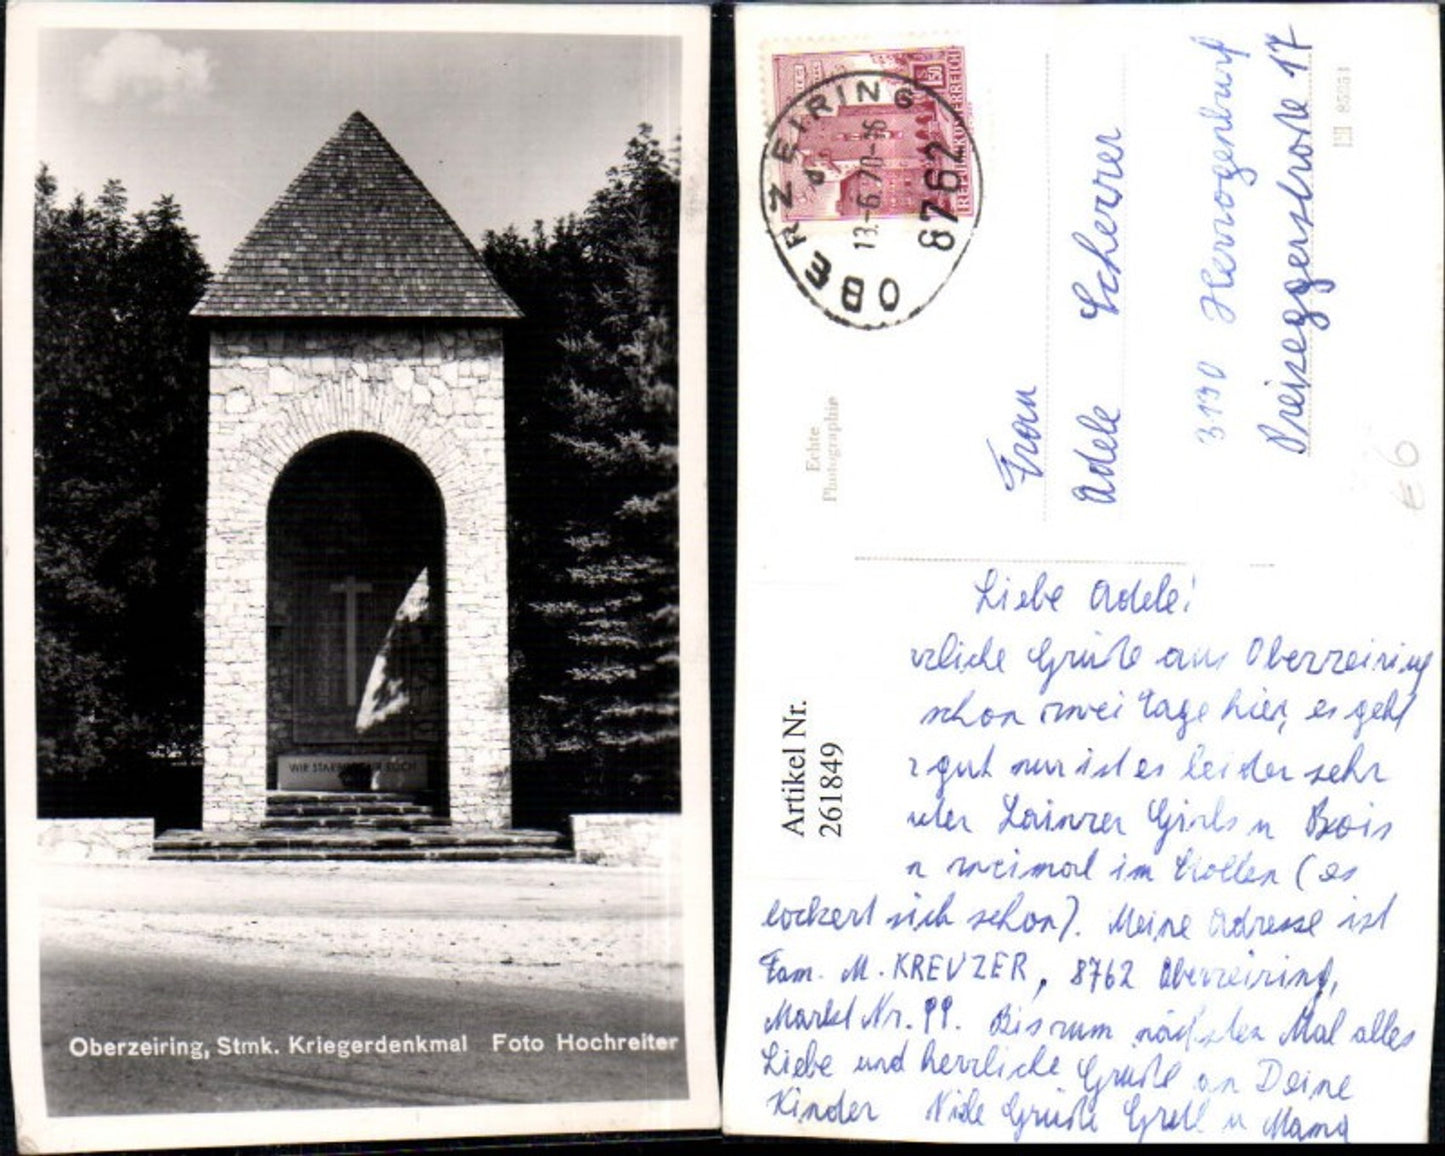 WIR STARBEN FÜR EUCH
Oberzeiring, Stmk. Kriegerdenkmal Foto Hochreiter
REPUBLIK ÖSTERREICH
1.50
OBERZEIRING
13.-6.70-16
8762
Echte
Photographie
Frau
Adele Scherrer
3130 Herzogenburg
Preiseggerstraße 17
€6
Artikel Nr.
261849
Liebe Adele!
rzliche Grüße aus Oberzeiring
schon zwei Tage hier, es geht
r gut nur ist es leider sehr
Lainzer Girls u Bois
n zweimal im Stollen (es
lockert sich schon). Meine Adresse ist
Fam. M. KREUZER, 8762 Oberzeiring,
Markt Nr. 99. Bis zum nächsten Mal alles
Liebe und herzliche Grüße an Deine
Kinder Viele Grüße Gretl u Mama